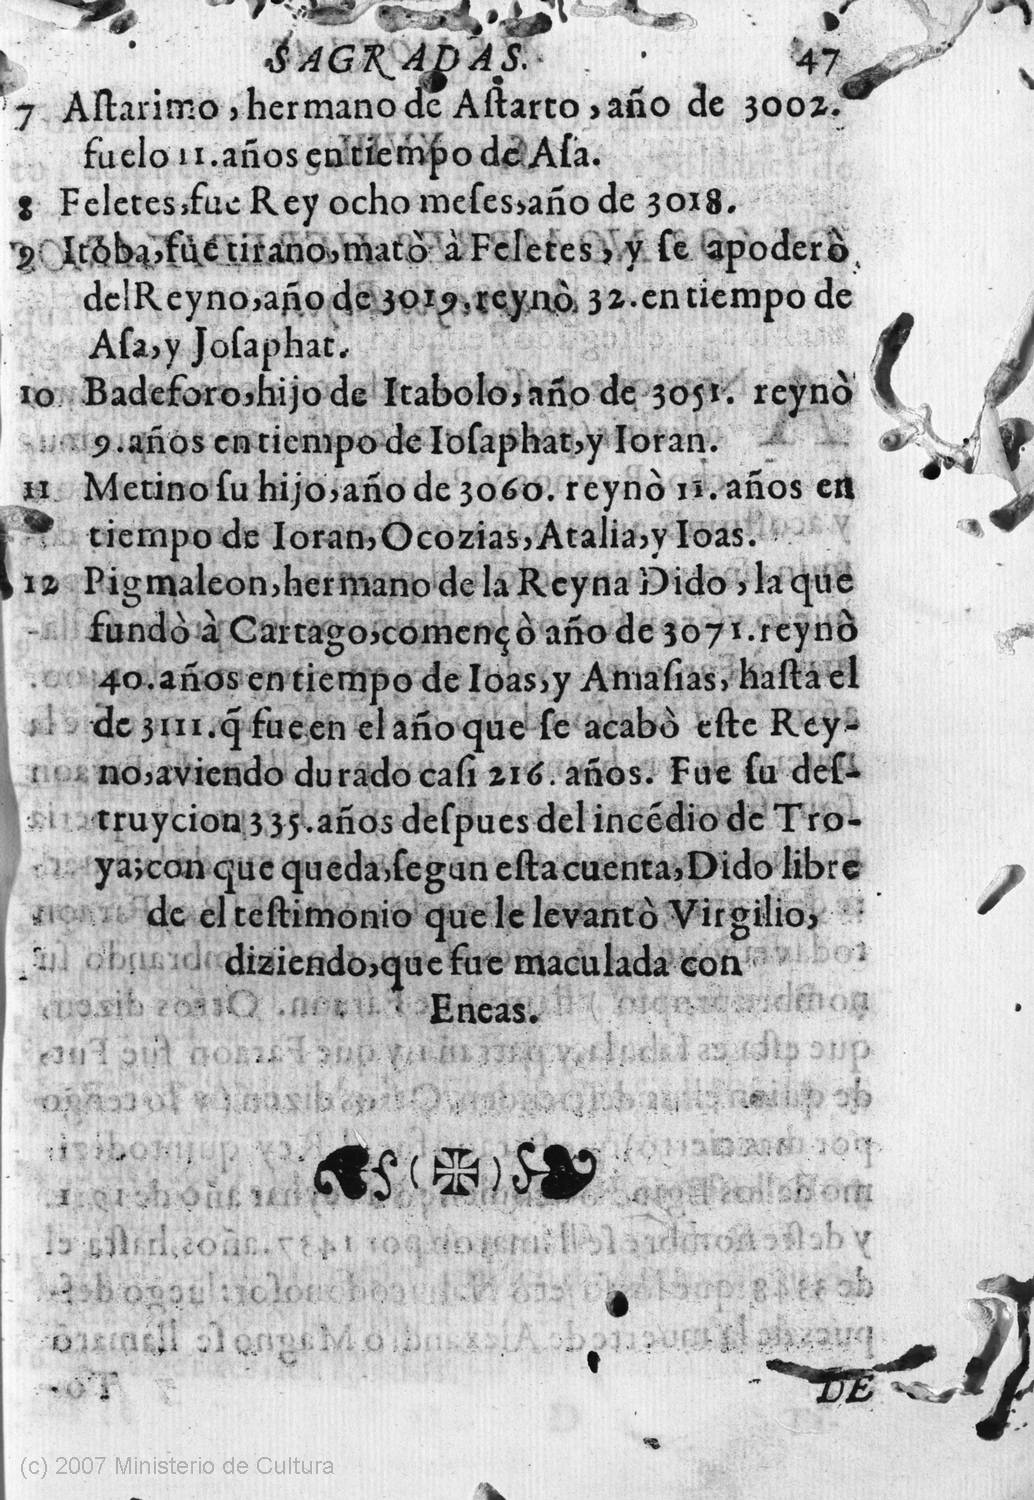 SAGRADAS. 47
7 Aſtarimo, hermano de Aſtarto, año de 3002.
fuelo 11. años en tiempo de Aſa.
8 Feletes, fue Rey ocho meſes, año de 3018.
9 Itoba, fue tirano, matò à Feletes, y ſe apoderò
del Reyno, año de 3019. reynò 32. en tiempo de
Aſa, y Joſaphat.
10 Badeforo, hijo de Itabolo, año de 3051. reynò
9. años en tiempo de Ioſaphat, y Ioran.
11 Metino ſu hijo, año de 3060. reynò 11. años en
tiempo de Ioran, Ocozias, Atalia, y Ioas.
12 Pigmaleon, hermano de la Reyna Dido, la que
fundò à Cartago, començò año de 3071. reynò
40. años en tiempo de Ioas, y Amaſias, haſta el
de 3111. q̃ fue en el año que ſe acabò eſte Rey-
no, aviendo durado caſi 216. años. Fue ſu deſ-
truycion 335. años deſpues del incédio de Tro-
ya; con que queda, ſegun eſta cuenta, Dido libre
de el teſtimonio que le levantò Virgilio,
diziendo, que fue maculada con
Eneas.
DE
(c) 2007 Ministerio de Cultura